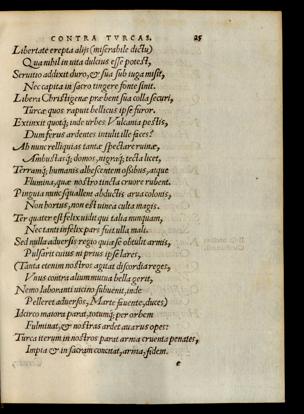 CONTRA TVRCAS. 25
Libertate erepta alijs (miserabile dictu)
Qua nihil in vita dulcius esse potest,
Seruitio addixit duro, & sua sub iuga misit,
Nec capita in sacro tingere fonte sinit.
Libera Christigenæ præbent sua colla securi,
Turcæ quos raput bellicus ipse furor.
Extinxit quotq; inde vrbes Vulcania pestis,
Dum ferus ardentes intulit ille faces?
Ab nunc relliquias tantæ spectare ruinæ,
Ambustasq; domos, nigraq; tecta licet,
Terramq; humanis albescentem ossibus, atque
Flumina, quæ nostro tincta cruore rubent.
Pinguia nunc squallent abductis arua colonis,
Non hortus, non est vinea culta magis.
Ter quater est felix uidit qui talia nunquam,
Nec tanti infelix pars fuit ulla mali.
Sed nulla aduersis regio quia se obtulit armis,
Pulsarit cuius ni prius ipse lares,
(Tanta etenim nostros agitat discordia reges,
Vnus contra alium mutua bella gerit,
Nemo laboranti vicino subuenit, inde
Pelleret aduersos, Marte fauente, duces)
Idcirco maiora parat, totumq; per orbem
Fulminat, & nostras ardet auarus opes:
Turca iterum in nostros parat arma cruenta penates,
Impia & in sacram concitat, arma, fidem.
e